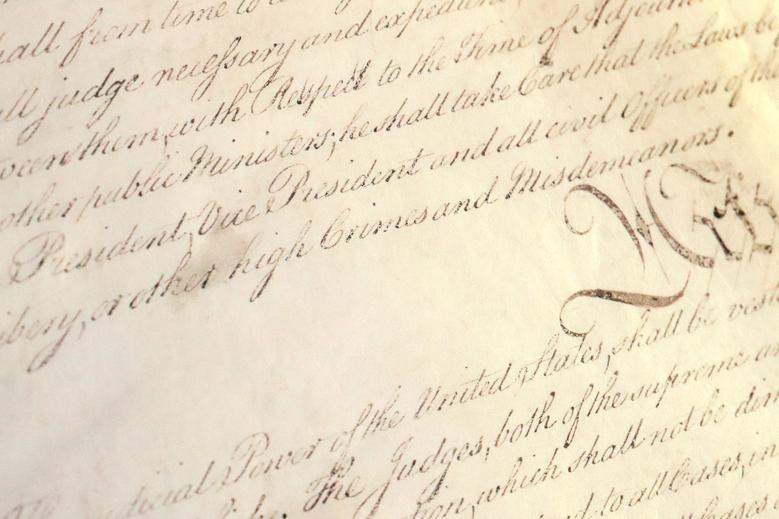 shall from time to
all judge necessary and expedient
tween them, with Respect to the Time of Adjourn
other public Ministers; he shall take Care that the Laws be
President, Vice President and all civil Officers of the
ibery, or other high Crimes and Misdemeanors.
judicial Power of the United States, shall be vest
The Judges, both of the supreme an
tion, which shall not be dim
to all Cases, in
Cases